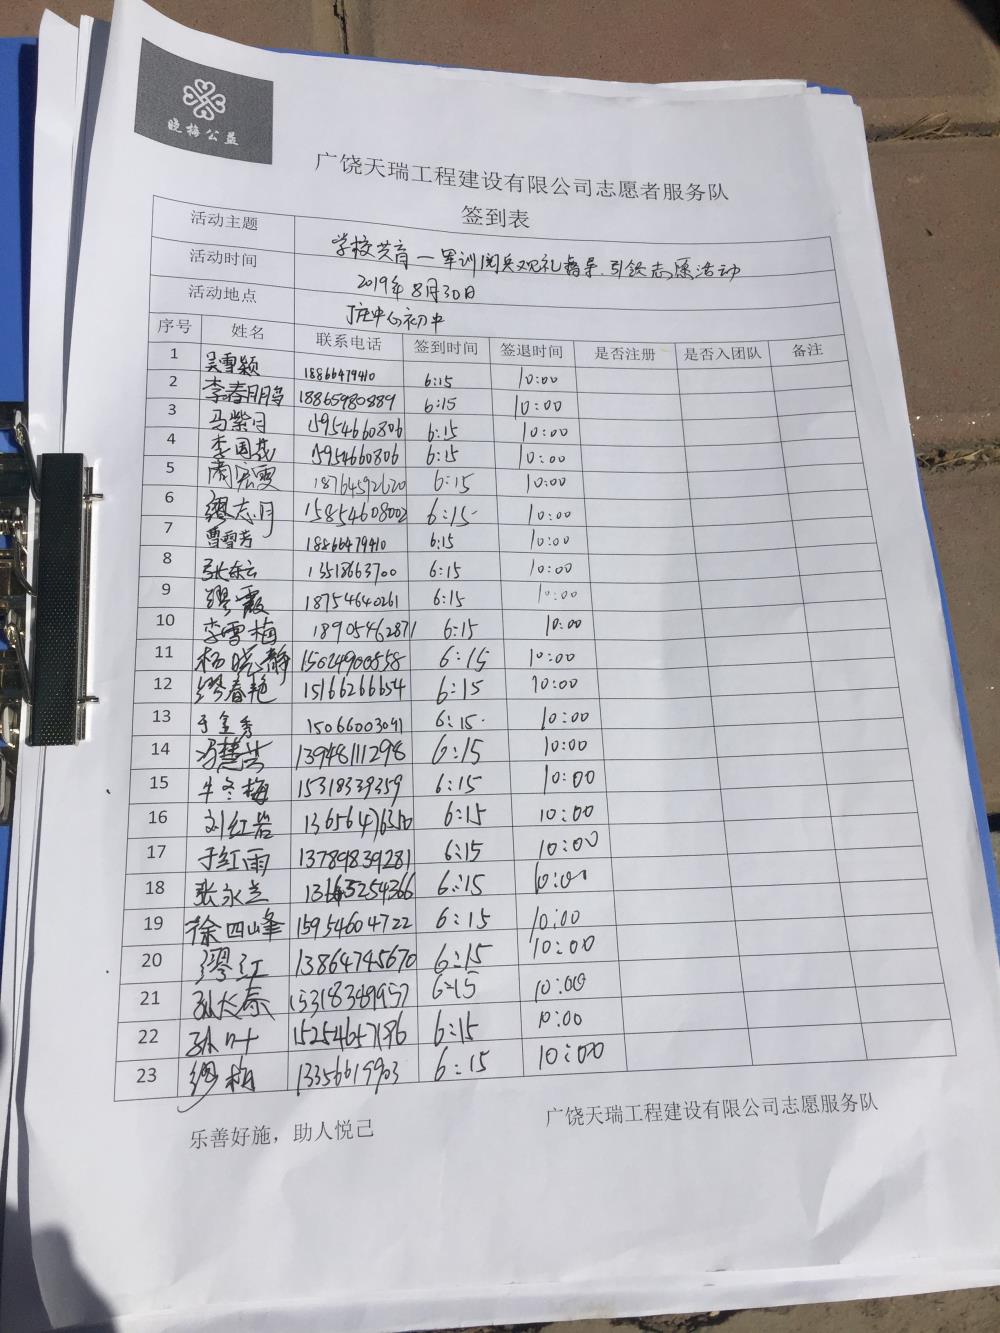 晓梅公益
广饶天瑞工程建设有限公司志愿者服务队
签到表
活动主题 学校共育一军训阅兵观礼督导、引领志愿活动
活动时间 2019年8月30日
活动地点 丁庄中心初中
序号 姓名 联系电话 签到时间 签退时间 是否注册 是否入团队 备注
1 吴雪颖 18866479410 6:15 10:00
2 李春鹏 18865980889 6:15 10:00
3 马紫月 15954660806 6:15 10:00
4 李国燕 15954660806 6:15 10:00
5 18764592620 6:15 10:00
6 缪志月 15854608002 6:15 10:00
7 曹雪芳 18866479410 6:15 10:00
8 张东云 13518663700 6:15 10:00
9 缪霞 18754640261 6:15 10:00
10 李雪梅 18905462871 6:15 10:00
11 杨晓静 15624900558 6:15 10:00
12 缪春艳 15166266654 6:15 10:00
13 于金秀 15066003041 6:15 10:00
14 冯慧芸 13948111298 6:15 10:00
15 牛冬梅 15318339359 6:15 10:00
16 刘红岩 13656476350 6:15 10:00
17 于红雨 13789839281 6:15 10:00
18 张永兰 13663254366 6:15 10:00
19 徐四峰 15954604722 6:15 10:00
20 缪江 13864745670 6:15 10:00
21 孙大春 15318389957 6:15 10:00
22 孙叶 15254657186 6:15 10:00
23 缪梅 13356619903 6:15 10:00
乐善好施，助人悦己
广饶天瑞工程建设有限公司志愿服务队